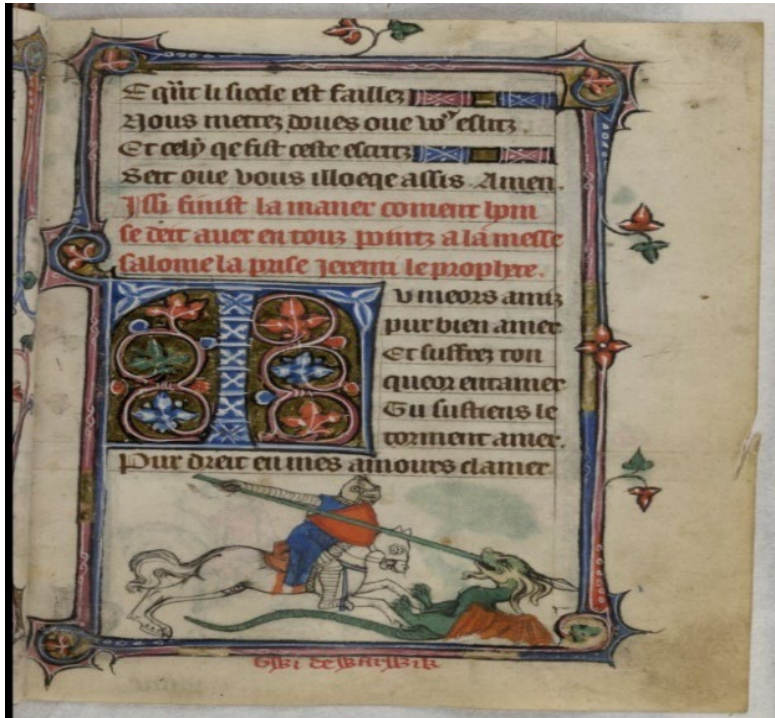 E qūt li siecle est faillez
Nous mettez oue vos eslitz
Et cely qe fist ceste escritz
Seit oue vous illoeqe assis. Amen.
Issi finist la maner coment hom
se deit auer en touz pointz a la messe
Salome la prise Jeremi le prophete.
Tu meors amis
pur bien amer
Et suffrez ton
queor entamer
Tu sustiens le
torment amer.
Pur dreit en mes amours clamer
Gwi de warwik